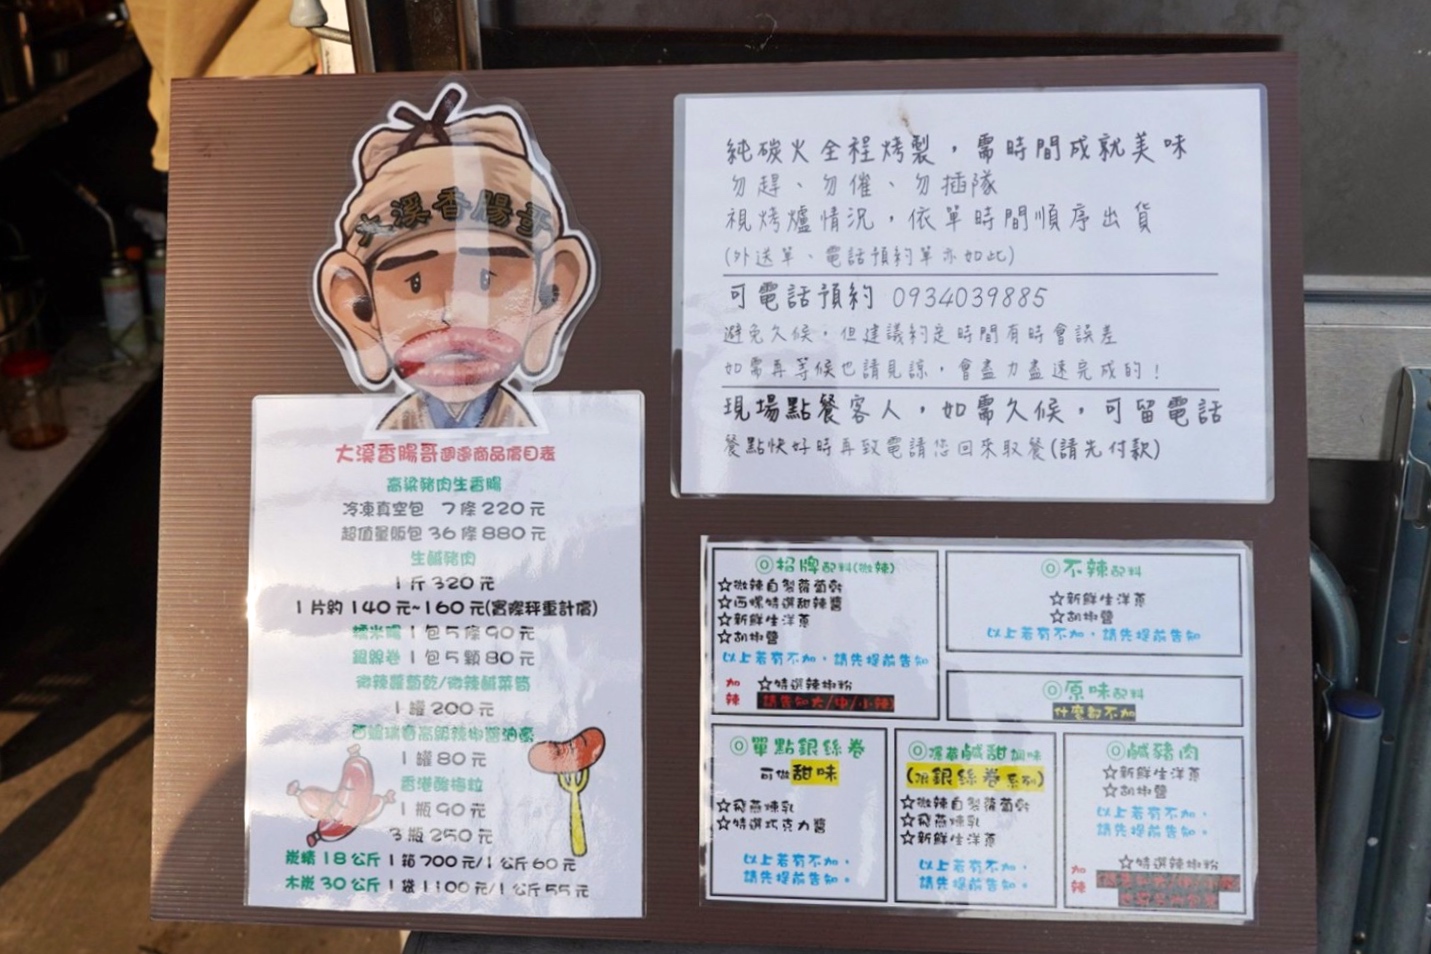 大溪香腸哥
大溪香腸哥週邊商品價目表
高粱豬肉生香腸
冷凍真空包 7條220元
超值量販包36條880元
生鹹豬肉
1斤320元
1片約140元~160元(實際秤重計價)
糯米腸1包5條90元
銀絲卷1包5顆80元
微辣蘿蔔乾/微辣鹹菜筍
1罐200元
西螺瑞春高級辣椒醬油膏
1罐80元
香港酸梅粒
1瓶90元
3瓶250元
炭精18公斤1箱700元/1公斤60元
木炭30公斤1袋1100元/1公斤55元
純碳火全程烤製，需時間成就美味
勿趕、勿催、勿插隊
視烤爐情況，依單時間順序出貨
(外送單、電話預約單亦如此)
可電話預約 0934039885
避免久候，但建議約定時間有時會誤差
如需再等候也請見諒，會盡力盡速完成的！
現場點餐客人，如需久候，可留電話
餐點快好時再致電請您回來取餐(請先付款)
◎招牌配料(微辣)
☆微辣自製蘿蔔乾
☆西螺特選甜辣醬
☆新鮮生洋蔥
☆胡椒鹽
以上若有不加，請先提前告知
加辣 ☆特選辣椒粉
請告知大/中/小辣
◎不辣配料
☆新鮮生洋蔥
☆胡椒鹽
以上若有不加，請先提前告知
◎原味配料
什麼都不加
◎單點銀絲卷
可做甜味
☆飛燕煉乳
☆特選巧克力醬
以上若有不加，
請先提前告知。
鹹甜調味
(限銀絲卷系列)
☆微辣自製蘿蔔乾
☆飛燕煉乳
☆新鮮生洋蔥
以上若有不加，
請先提前告知。
◎鹹豬肉
☆新鮮生洋蔥
☆胡椒鹽
以上若有不加，
請先提前告知。
加辣 ☆特選辣椒粉